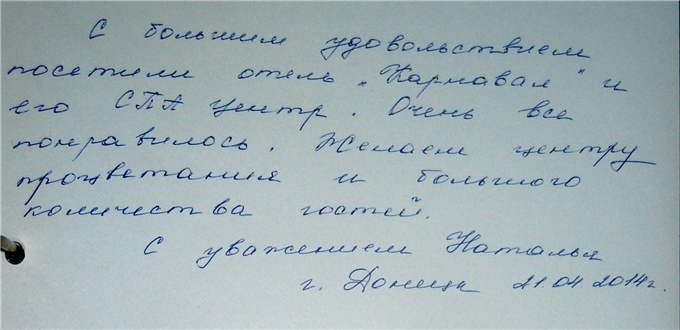 С большим удовольствием
посетили отель „Карнавал" и
его СПА центр. Очень все
понравилось. Желаем центру
процветания и большого
количества гостей.
С уважением Наталья
г. Донецк 21.04 2014г.